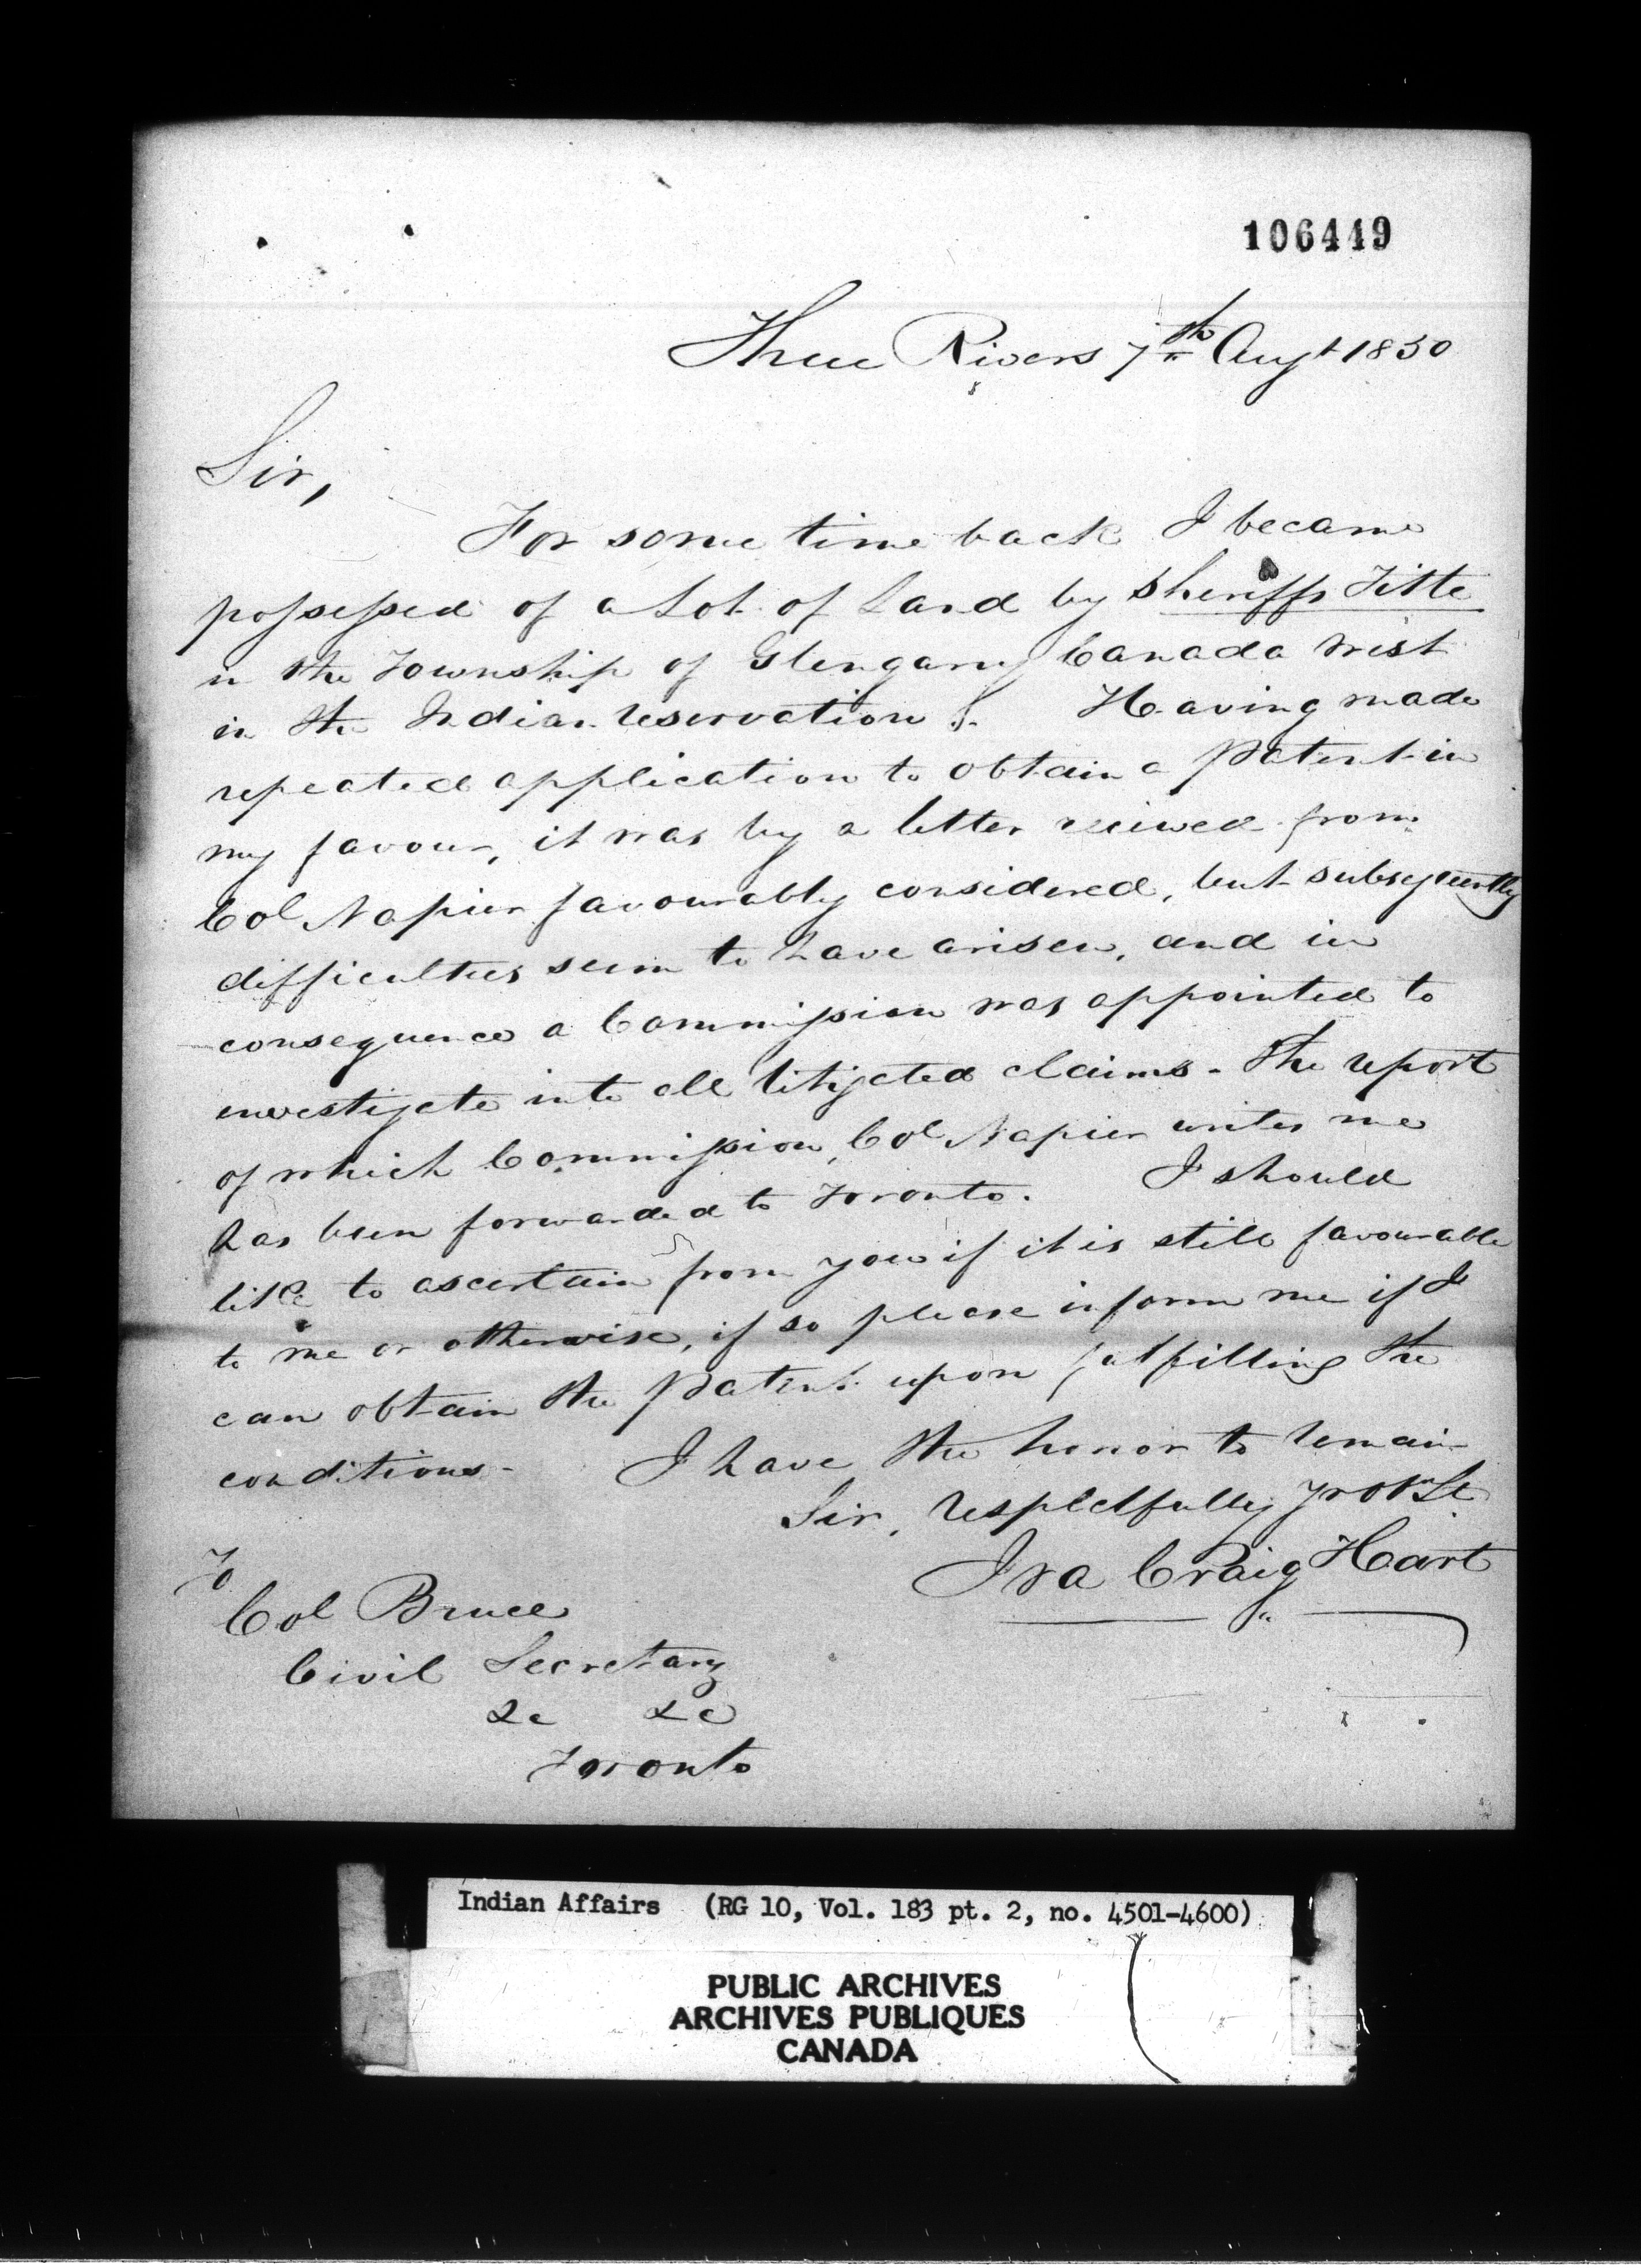 106449
Three Rivers 7th Augt 1850
Sir,
For some time back I became
possessed of a Lot of Land by Sheriffs Title
in the Township of Glengary Canada West
in the Indian reservation. Having made
repeated application to obtain a Patent in
my favour, it was by a letter reciwed from
Col Napier favourably considered, but subsequently
difficulties seem to have arisen, and in
consequence a Commission was appointed to
investigate into all litigated claims - The report
of which Commission, Col Napier writes me
has been forwarded to Toronto. I should
like to ascertain from you if it is still favourable
to me or otherwise, if so please inform me if I
can obtain the Patent upon fulfilling the
conditions - I have the honor to remain
Sir, respectfully yr Obt St
Ira Craig Hart
To
Col Bruce
Civil Secretary
&c &c
Toronto
Indian Affairs (RG 10, Vol. 183 pt. 2, no. 4501-4600)
PUBLIC ARCHIVES
ARCHIVES PUBLIQUES
CANADA